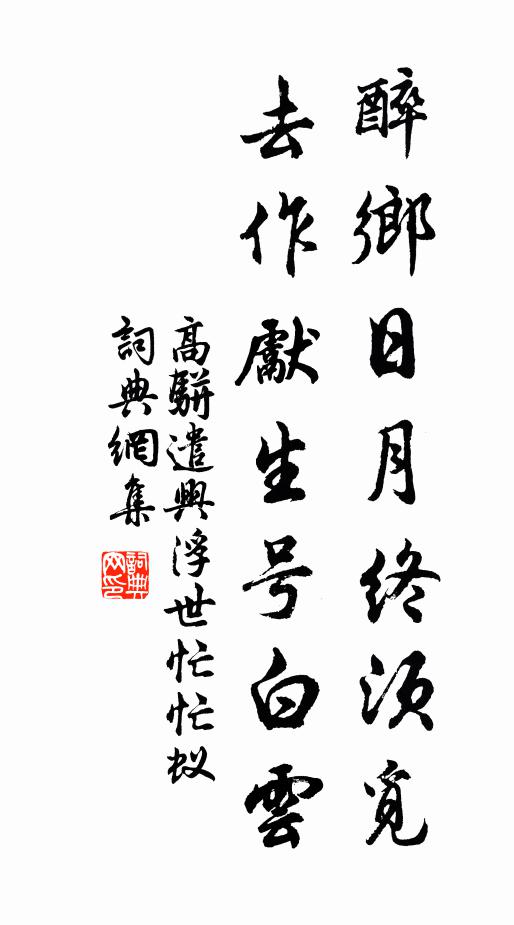 醉鄉日月終須覓
去作獻生号白雲
高駢遣興浮世忙忙蚁
詞典網集
詞典网印